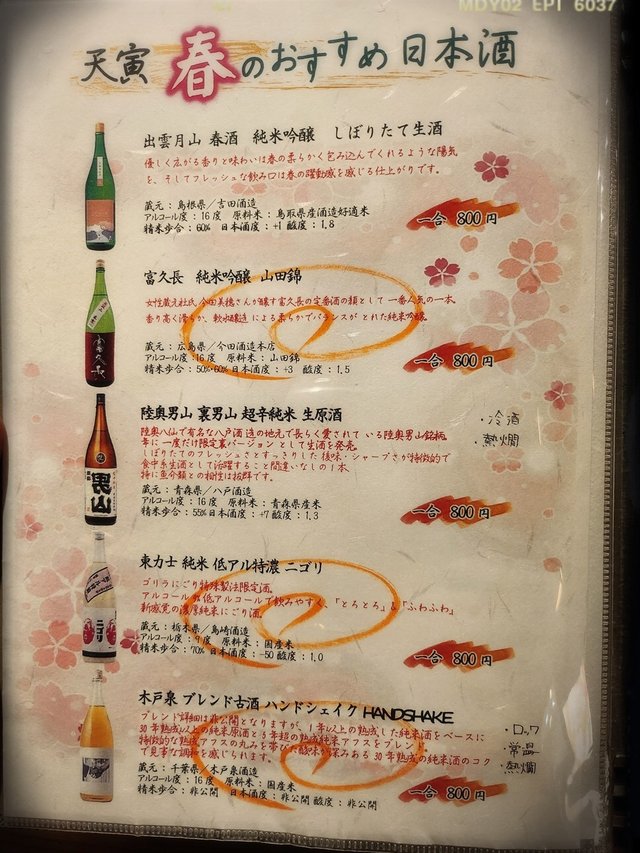 MDY02 EPI 6037
天寅 春のおすすめ日本酒
出雲月山 春酒 純米吟醸 しぼりたて生酒
優しく広がる香りと味わいは春の柔らかく包み込んでくれるような陽気
を、そしてフレッシュな飲み口は春の躍動感を感じる仕上がりです。
蔵元：島根県／吉田酒造
アルコール度：16度 原料米：鳥取県産酒造好適米
精米歩合：60% 日本酒度：+1 酸度：1.8
一合 800円
富久長 純米吟醸 山田錦
女性蔵元杜氏 今田美穂さんが醸す富久長の定番酒の顔として一番人気の一本。
香り高く滑らか、軟水醸造による柔らかでバランスがとれた純米吟醸。
蔵元：広島県／今田酒造本店
アルコール度：16度 原料米：山田錦
精米歩合：50%・60% 日本酒度：+3 酸度：1.5
一合 800円
陸奥男山 裏男山 超辛純米 生原酒
・冷酒
・熱燗
陸奥八仙で有名な八戸酒造の地元で長らく愛されている陸奥男山銘柄。
年に一度だけ限定裏バージョンとして生酒を発売。
しぼりたてのフレッシュさとすっきりした後味・シャープさが特徴的で
食中系生酒として活躍すること間違いなしの1本、
特に魚介類との相性は抜群です。
蔵元：青森県／八戸酒造
アルコール度：16度 原料米：青森県産米
精米歩合：55% 日本酒度：+7 酸度：1.3
一合 800円
東力士 純米 低アル特濃 ニゴリ
ゴリラにごり特殊製法限定酒。
アルコール 低アルコールで飲みやすく、「とろとろ」&「ふわふわ」
新感覚の濃厚純米にごり酒。
蔵元：栃木県／島崎酒造
アルコール度：9度 原料米：国産米
精米歩合：70% 日本酒度：-50 酸度：1.0
一合 800円
木戸泉 ブレンド古酒 ハンドシェイク HANDSHAKE
・ロック
・常温
・熱燗
ブレンド詳細は非公開となりますが、1年以上の熟成した純米酒をベースに
30年熟成以上の純米原酒と5年超の熟成純米アフスをブレンド
特徴的な熟成アフスの丸みを帯びた酸味が深みある30年の純米酒のコク
で見事な調和を感じられます。
蔵元：千葉県／木戸泉酒造
アルコール度：16度 原料米：国産米
精米歩合：非公開 日本酒度：非公開 酸度：非公開
一合 800円
男山
ニゴリ
富久長